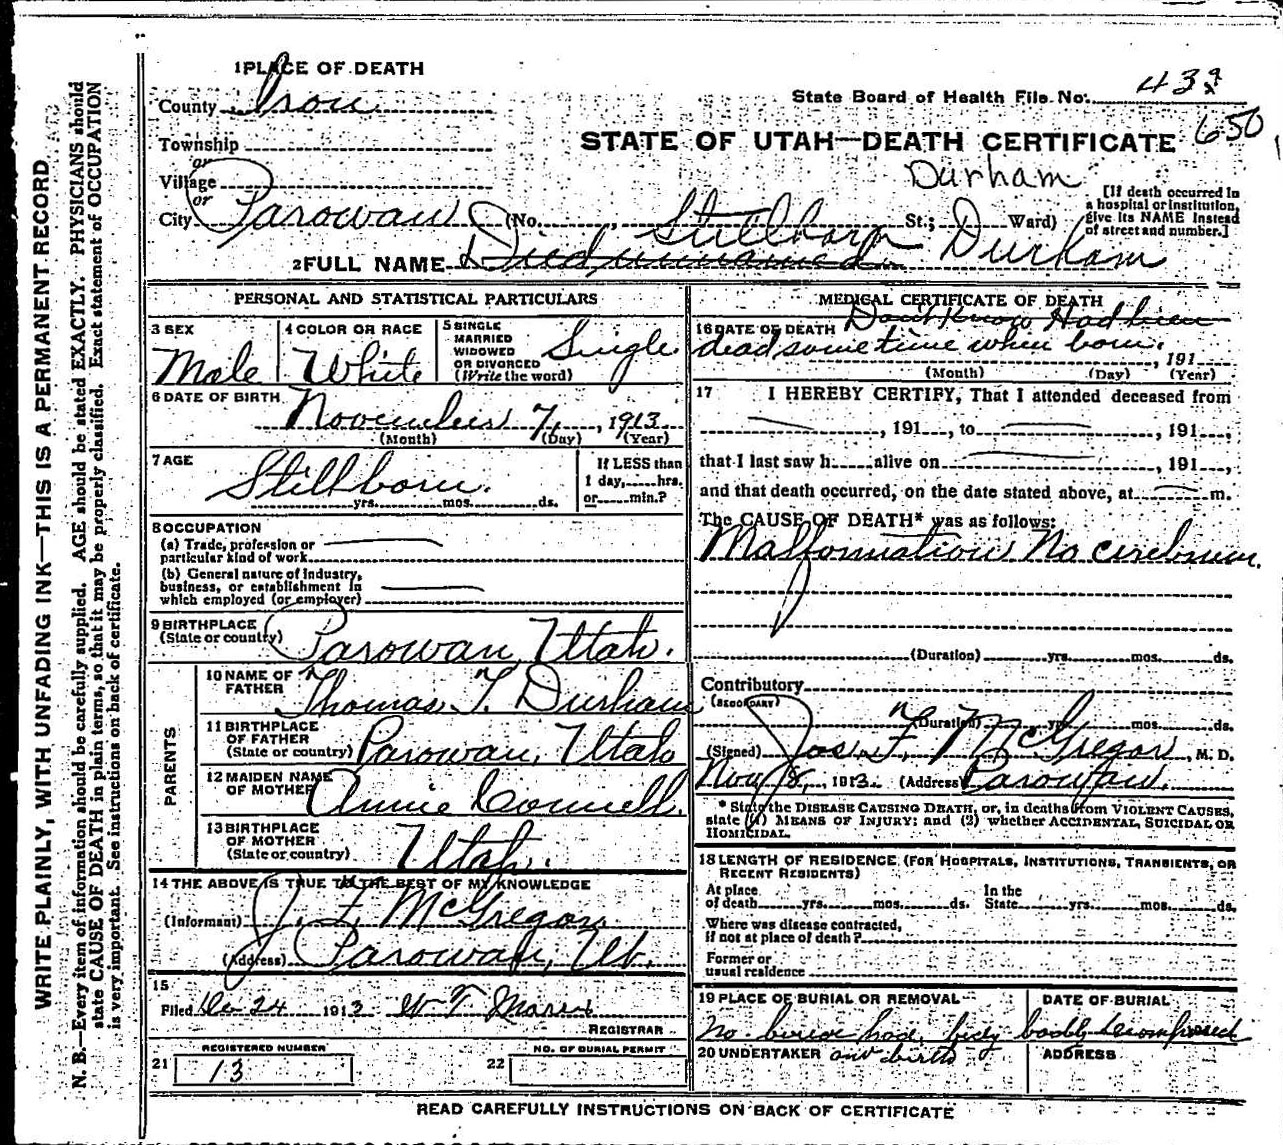 1 PLACE OF DEATH
County Iron
State Board of Health File No. 43
STATE OF UTAH—DEATH CERTIFICATE 650
Township
or
Village
or
City Parowan (No. , Stillborn St.; Ward)
Durham
[If death occurred in a hospital or institution, give its NAME instead of street and number.]
2 FULL NAME Died unnamed Durham
PERSONAL AND STATISTICAL PARTICULARS
3 SEX Male
4 COLOR OR RACE White
5 SINGLE MARRIED WIDOWED OR DIVORCED (Write the word) Single
6 DATE OF BIRTH November 7, , 1913
(Month) (Day) (Year)
7 AGE Stillborn.
yrs. mos. ds.
If LESS than 1 day, hrs. or min.?
8 OCCUPATION
(a) Trade, profession or particular kind of work
(b) General nature of industry, business, or establishment in which employed (or employer)
9 BIRTHPLACE (State or country) Parowan, Utah.
PARENTS
10 NAME OF FATHER Thomas T. Durham
11 BIRTHPLACE OF FATHER (State or country) Parowan, Utah
12 MAIDEN NAME OF MOTHER Annie Connell.
13 BIRTHPLACE OF MOTHER (State or country) Utah.
14 THE ABOVE IS TRUE TO THE BEST OF MY KNOWLEDGE
(Informant) J. F. McGregor
(Address) Parowan, Ut.
15
Filed 24 1913 REGISTRAR
REGISTERED NUMBER
21 13
NO. OF BURIAL PERMIT
22
MEDICAL CERTIFICATE OF DEATH
16 DATE OF DEATH Don't Know Had been
dead some time when born. , 191
(Month) (Day) (Year)
17 I HEREBY CERTIFY, That I attended deceased from
, 191 , to , 191 ,
that I last saw h alive on , 191 ,
and that death occurred, on the date stated above, at m.
The CAUSE OF DEATH* was as follows:
Malformation No cerebrum.
(Duration) yrs. mos. ds.
Contributory
(SECONDARY)
(Duration) yrs. mos. ds.
(Signed) Jas. F. McGregor, M. D.
Nov 8, 1913. (Address) Parowan.
* State the DISEASE CAUSING DEATH, or, in deaths from VIOLENT CAUSES, state (1) MEANS OF INJURY; and (2) whether ACCIDENTAL, SUICIDAL OR HOMICIDAL.
18 LENGTH OF RESIDENCE (FOR HOSPITALS, INSTITUTIONS, TRANSIENTS, OR RECENT RESIDENTS)
At place of death yrs. mos. ds. In the State yrs. mos. ds.
Where was disease contracted, if not at place of death?
Former or usual residence
19 PLACE OF BURIAL OR REMOVAL DATE OF BURIAL
No burial had, body badly decomposed
20 UNDERTAKER birth ADDRESS
READ CAREFULLY INSTRUCTIONS ON BACK OF CERTIFICATE
WRITE PLAINLY, WITH UNFADING INK—THIS IS A PERMANENT RECORD
N. B.—Every item of information should be carefully supplied. AGE should be stated EXACTLY. PHYSICIANS should
state CAUSE OF DEATH in plain terms, so that it may be properly classified. Exact statement of OCCUPATION
is very important. See instructions on back of certificate.